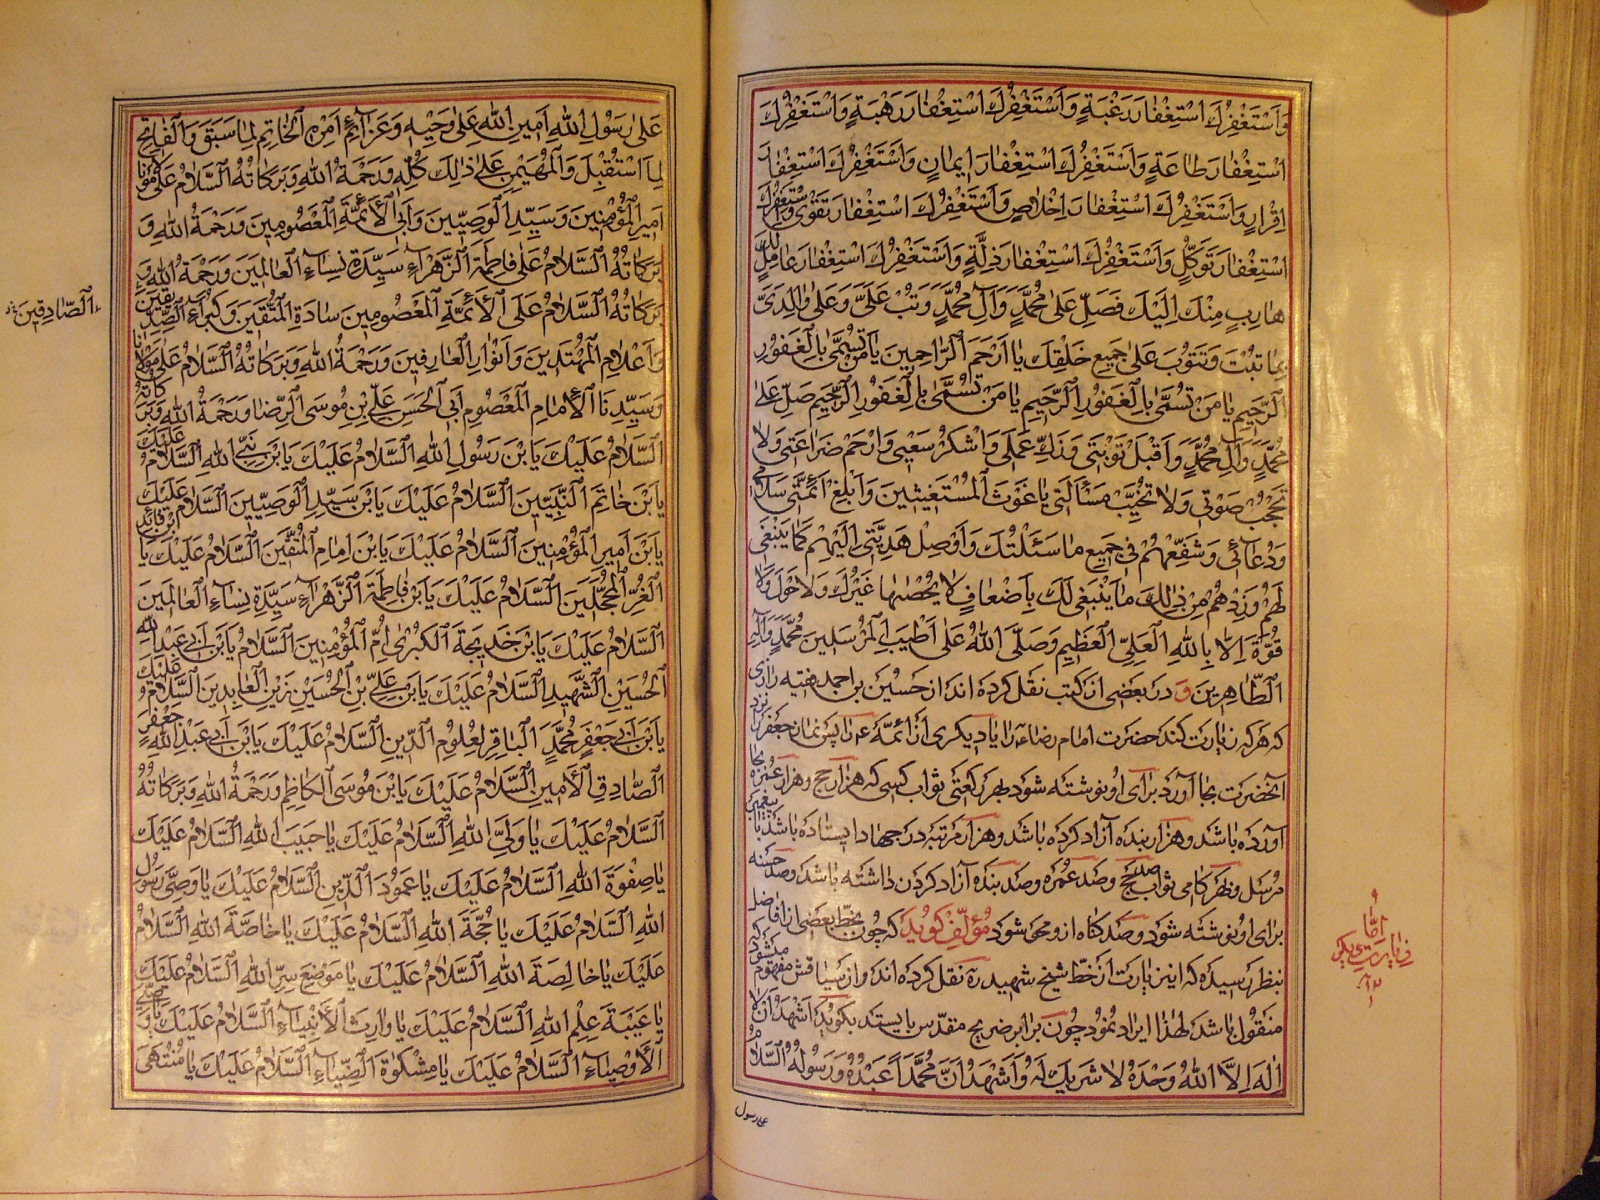 وَاَسْتَغْفِرُكَ اسْتِغْفارَ رَغْبَةٍ وَاَسْتَغْفِرُكَ اسْتِغْفارَ رَهْبَةٍ وَاَسْتَغْفِرُكَ
اسْتِغْفارَ طاعَةٍ وَاَسْتَغْفِرُكَ اسْتِغْفارَ ايمانٍ وَاَسْتَغْفِرُكَ اسْتِغْفارَ
اِقْرارٍ وَاَسْتَغْفِرُكَ اسْتِغْفارَ اِخْلاصٍ وَاَسْتَغْفِرُكَ اسْتِغْفارَ تَقْوى وَاَسْتَغْفِرُكَ
اسْتِغْفارَ تَوَكُّلٍ وَاَسْتَغْفِرُكَ اسْتِغْفارَ ذِلَّةٍ وَاَسْتَغْفِرُكَ اسْتِغْفارَ عامِلٍ لَكَ
هارِبٍ مِنْكَ اِلَيْكَ فَصَلِّ عَلى مُحَمَّدٍ وَآلِ مُحَمَّدٍ وَتُبْ عَلَيَّ وَعَلى والِدَيَّ
بِما تُبْتَ وَتَتُوبُ عَلى جَميعِ خَلْقِكَ يا اَرْحَمَ الرّاحِمينَ يا مَنْ تُسَمّى بِالْغَفُورِ
الرَّحيمِ يا مَنْ تُسَمّى بِالْغَفُورِ الرَّحيمِ يا مَنْ تُسَمّى بِالْغَفُورِ الرَّحيمِ صَلِّ عَلى
مُحَمَّدٍ وَآلِ مُحَمَّدٍ وَاقْبَلْ تَوْبَتي وَزَكِّ عَمَلي وَاشْكُرْ سَعْيي وَارْحَمْ ضَراعَتي وَلا
تَحْجُبْ صَوْتي وَلا تُخَيِّبْ مَسْاَلَتي يا غَوْثَ الْمُسْتَغيثينَ وَاَبْلِغْ اَئِمَّتي سَلامي
وَدُعآئي وَشَفِّعْهُمْ في جَميعِ ما سَئَلْتُكَ وَاَوْصِلْ هَدِيَّتي اِلَيْهِمْ كَما يَنْبَغي
لَهُمْ وَزِدْهُمْ مِنْ ذلِكَ ما يَنْبَغي لَكَ بِاَضْعافٍ لا يُحْصيها غَيْرُكَ وَلا حَوْلَ وَلا
قُوَّةَ اِلّا بِاللهِ الْعَلِيِّ الْعَظيمِ وَصَلَّى اللهُ عَلى اَطْيَبِ الْمُرْسَلينَ مُحَمَّدٍ وَآلِهِ
الطّاهِرينَ و در بعضى از كتب نقل كرده اند از حسين بن احمد فقيه رازى
كه هر كه زيارت كند حضرت امام رضا را يا ديكرى از ائمّه را پس نماز جعفر نزد
آنحضرت بجا آورد براى او نوشته شود بهر ركعتى ثواب كسى كه هزار حج و هزار عمره بجا
آورده باشد و هزار بنده آزاد كرده باشد و هزار مرتبه در جهاد ايستاده باشد با پيغمبر
مرسل و بهر كامى ثواب صد حج و صد عمره و صد بنده آزاد كردن داشته باشد و صد حسنه
براى او نوشته شود و صد كناه از او محى شود مؤلّف كويد كه چون بخطّ بعضى از افاضل
بنظر رسيده كه اين زيارت از خطّ شيخ شهيد ره نقل كرده اند و از سياقش مفهوم ميشود كه
منقول باشد لهذا ايراد نمود چون برابر ضريح مقدّس بايستد بكويد اَشْهَدُ اَنْ لا
اِلهَ اِلَّا اللهُ وَحْدَهُ لا شَريكَ لَهُ وَاَشْهَدُ اَنَّ مُحَمَّداً عَبْدُهُ وَرَسُولُهُ السَّلامُ
على رسول
امّا
زيارت ديكر
عَلى رَسُولِ اللهِ اَمينِ اللهِ عَلى وَحْيِهِ وَعَزآئِمِ اَمْرِهِ الْخاتِمِ لِما سَبَقَ وَالْفاتِحِ
لِمَا اسْتُقْبِلَ وَالْمُهَيْمِنِ عَلى ذلِكَ كُلِّهِ وَرَحْمَةُ اللهِ وَبَرَكاتُهُ السَّلامُ عَلى مَوْلانا
اَميرِ الْمُؤْمِنينَ وَسَيِّدِ الْوَصِيّينَ وَاَبِي الْاَئِمَّةِ الْمَعْصُومينَ وَرَحْمَةُ اللهِ وَ
بَرَكاتُهُ السَّلامُ عَلى فاطِمَةَ الزَّهْرآءِ سَيِّدَةِ نِسآءِ الْعالَمينَ وَرَحْمَةُ اللهِ وَ
بَرَكاتُهُ السَّلامُ عَلَى الْاَئِمَّةِ الْمَعْصُومينَ سادَةِ الْمُتَّقينَ وَكُبَرآءِ الصِّدّيقينَ
الصّادِقينَ
وَاَعْلامِ الْمُهْتَدينَ وَاَنْوارِ الْعارِفينَ وَرَحْمَةُ اللهِ وَبَرَكاتُهُ السَّلامُ عَلى مَوْلانا
وَسَيِّدِنَا الْاِمامِ الْمَعْصُومِ اَبِي الْحَسَنِ عَلِيِّ بْنِ مُوسَى الرِّضا وَرَحْمَةُ اللهِ وَبَرَكاتُهُ
السَّلامُ عَلَيْكَ يَابْنَ رَسُولِ اللهِ السَّلامُ عَلَيْكَ يَابْنَ نَبِيِّ اللهِ السَّلامُ عَلَيْكَ
يَابْنَ خاتَمِ النَّبِيّينَ السَّلامُ عَلَيْكَ يَابْنَ سَيِّدِ الْوَصِيّينَ السَّلامُ عَلَيْكَ
يَابْنَ اَميرِ الْمُؤْمِنينَ السَّلامُ عَلَيْكَ يَابْنَ اِمامِ الْمُتَّقينَ السَّلامُ عَلَيْكَ يَا ابْنَ قائِدِ
الْغُرِّ الْمُحَجَّلينَ السَّلامُ عَلَيْكَ يَابْنَ فاطِمَةَ الزَّهْرآءِ سَيِّدَةِ نِسآءِ الْعالَمينَ
السَّلامُ عَلَيْكَ يَابْنَ خَديجَةَ الْكُبْرى اُمِّ الْمُؤْمِنينَ السَّلامُ يَابْنَ اَبي عَبْدِ اللهِ
الْحُسَيْنِ الشَّهيدِ السَّلامُ عَلَيْكَ يَابْنَ عَلِيِّ بْنِ الْحُسَيْنِ زَيْنِ الْعابِدينَ السَّلامُ عَلَيْكَ
يَابْنَ اَبي جَعْفَرٍ مُحَمَّدٍ الْباقِرِ لِعُلُومِ الدّينِ السَّلامُ عَلَيْكَ يَابْنَ اَبي عَبْدِ اللهِ جَعْفَرٍ
الصّادِقِ الْاَمينِ السَّلامُ عَلَيْكَ يَابْنَ مُوسَى الْكاظِمِ وَرَحْمَةُ اللهِ وَبَرَكاتُهُ
السَّلامُ عَلَيْكَ يا وَلِيَّ اللهِ السَّلامُ عَلَيْكَ يا حَبيبَ اللهِ السَّلامُ عَلَيْكَ
يا صِفْوَةَ اللهِ السَّلامُ عَلَيْكَ يا عَمُودَ الدّينِ السَّلامُ عَلَيْكَ يا وَصِيَّ رَسُولِ
اللهِ السَّلامُ عَلَيْكَ يا حُجَّةَ اللهِ السَّلامُ عَلَيْكَ يا خاصَّةَ اللهِ السَّلامُ
عَلَيْكَ يا خالِصَةَ اللهِ السَّلامُ عَلَيْكَ يا مَوْضِعَ سِرِّ اللهِ السَّلامُ عَلَيْكَ
يا عَيْبَةَ عِلْمِ اللهِ السَّلامُ عَلَيْكَ يا وارِثَ الْاَنْبِيآءِ السَّلامُ عَلَيْكَ يا وَصِيَّ
الْاَوْصِيآءِ السَّلامُ عَلَيْكَ يا مِشْكوةَ الضِّيآءِ السَّلامُ عَلَيْكَ يا مُنْتَهى